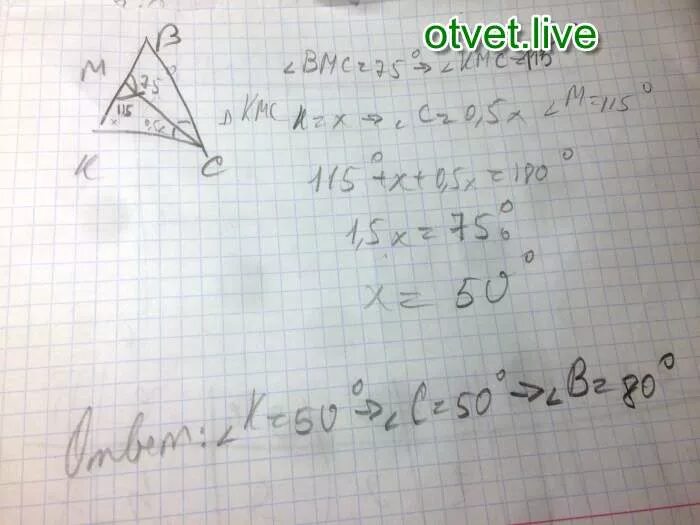 otvet.live
B
M 75°
115
x 0,5x
K C
∠BMC=75°→∠KMC=115°
△ KMC K=x→∠C=0,5x ∠M=115°
115°+x+0,5x=180°
1,5x=75°
x=50°
Ответ:∠K=50°→∠C=50°→∠B=80°